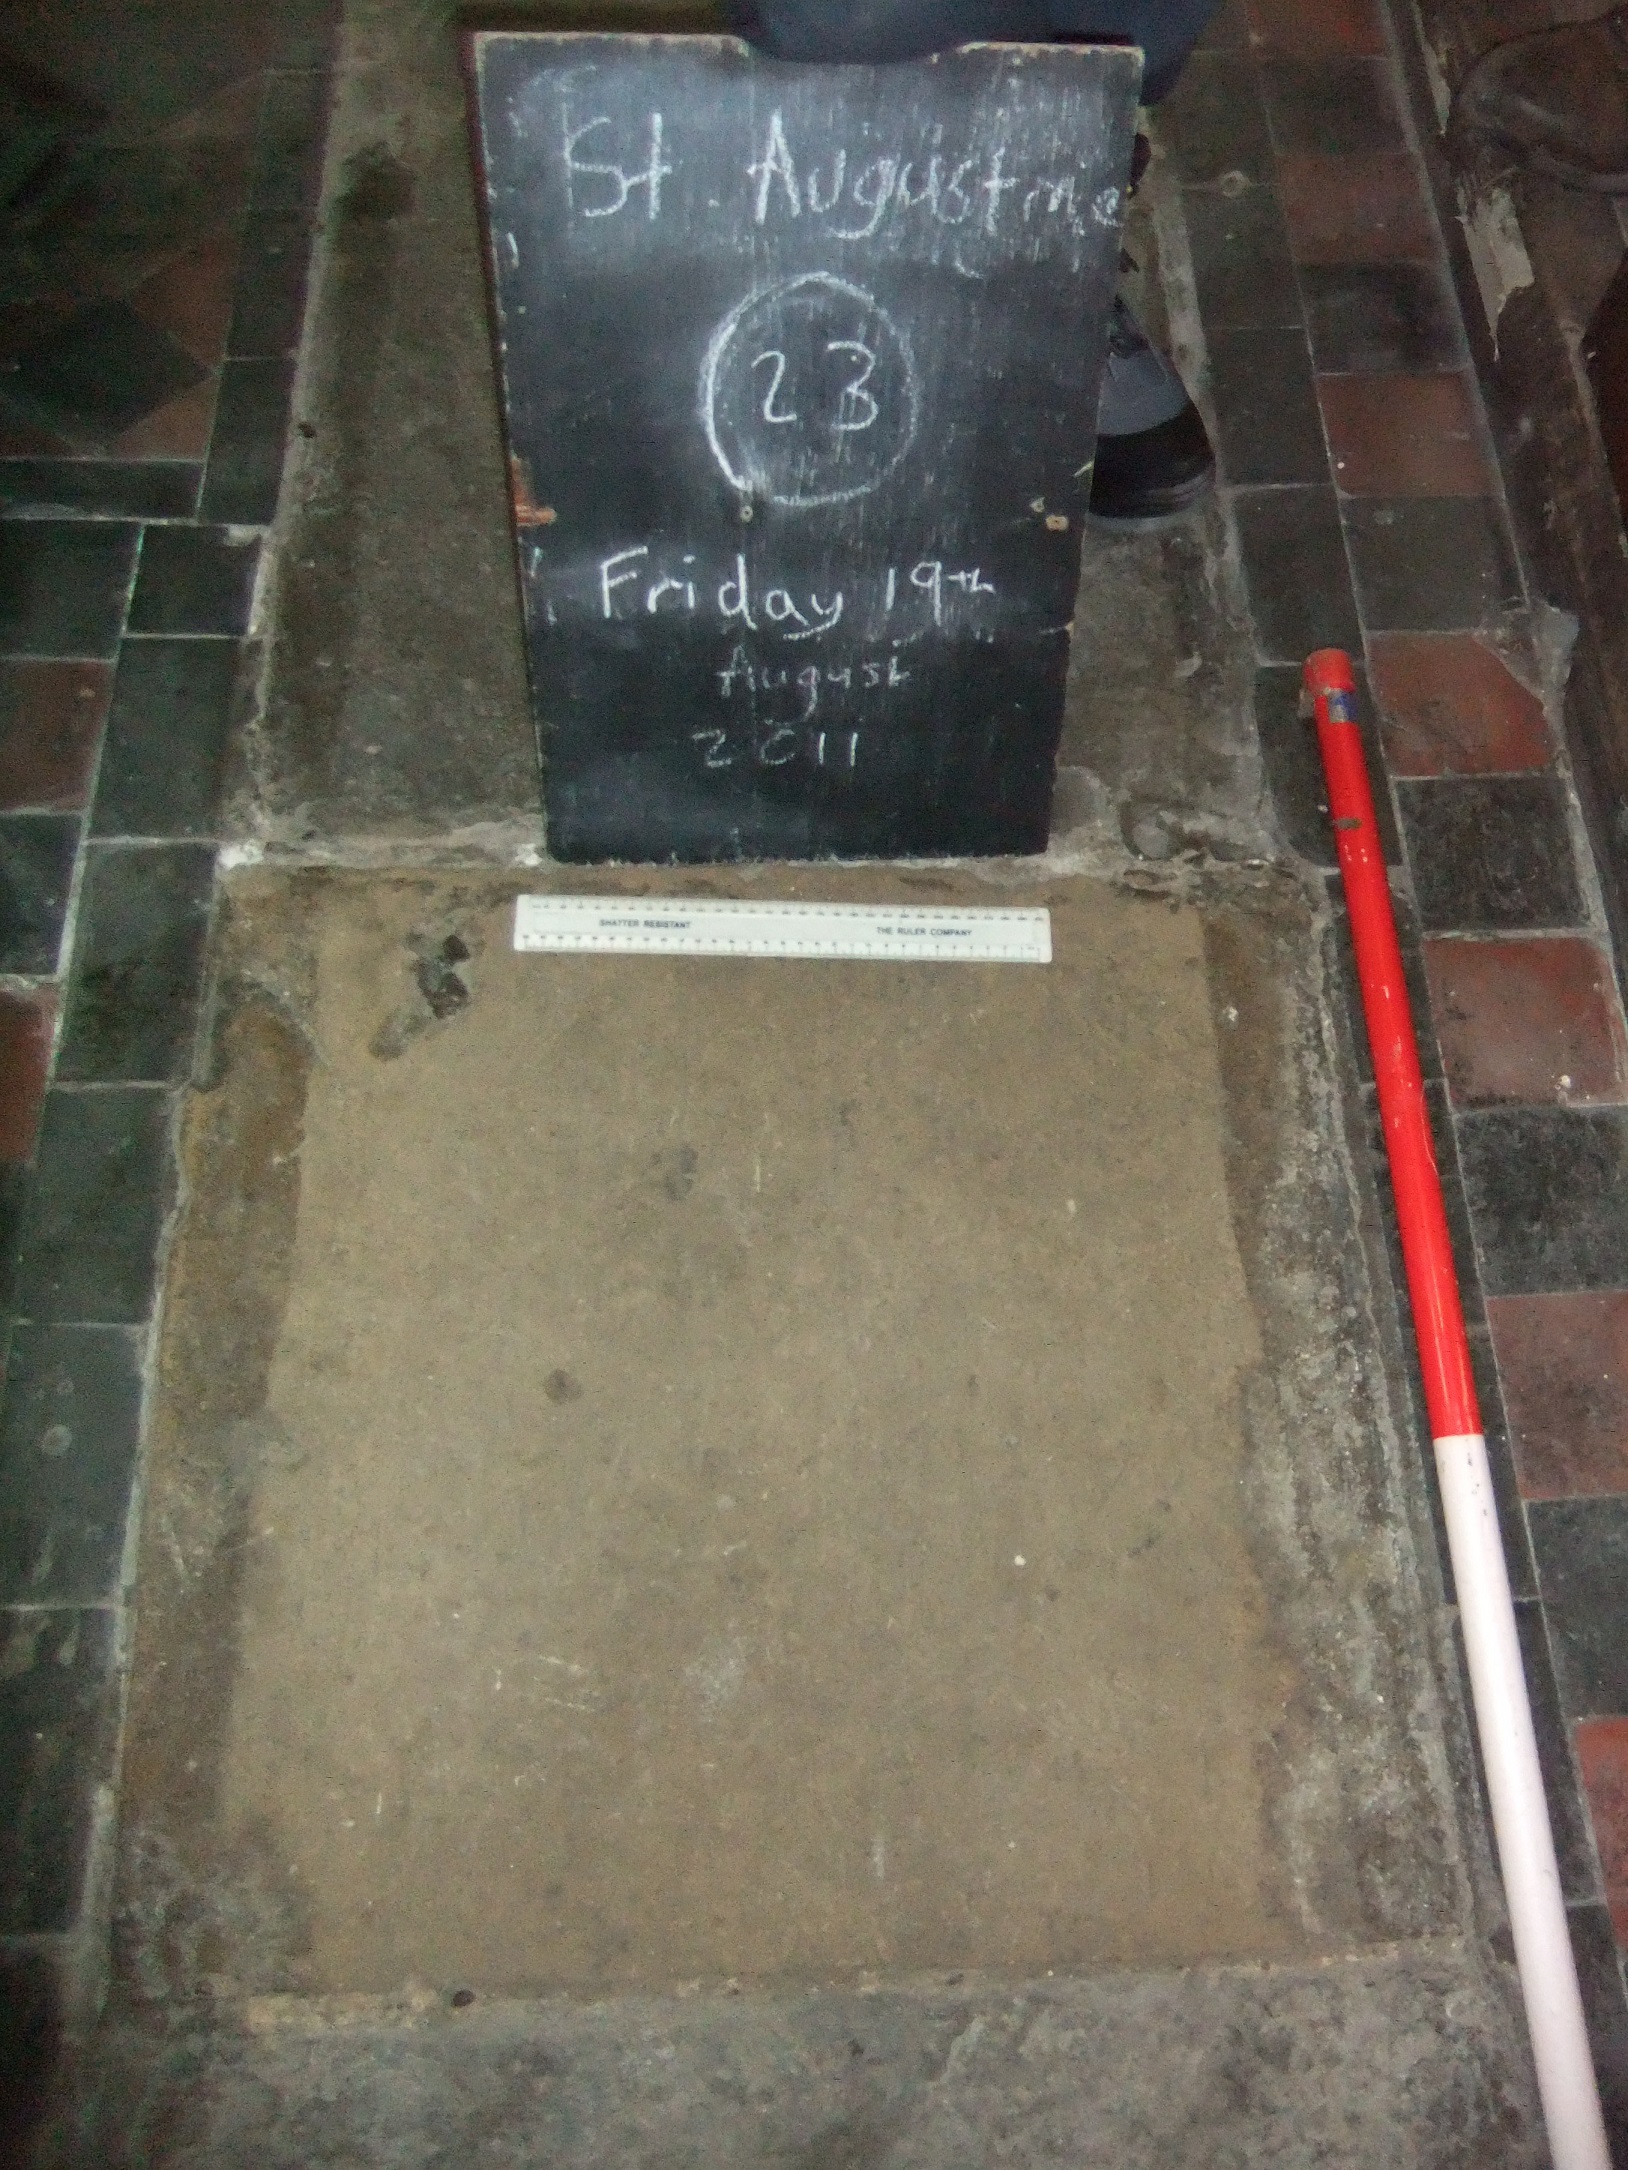 St. Augustine
23
Friday 19th
August
2011
SHATTER RESISTANT
THE RULER COMPANY